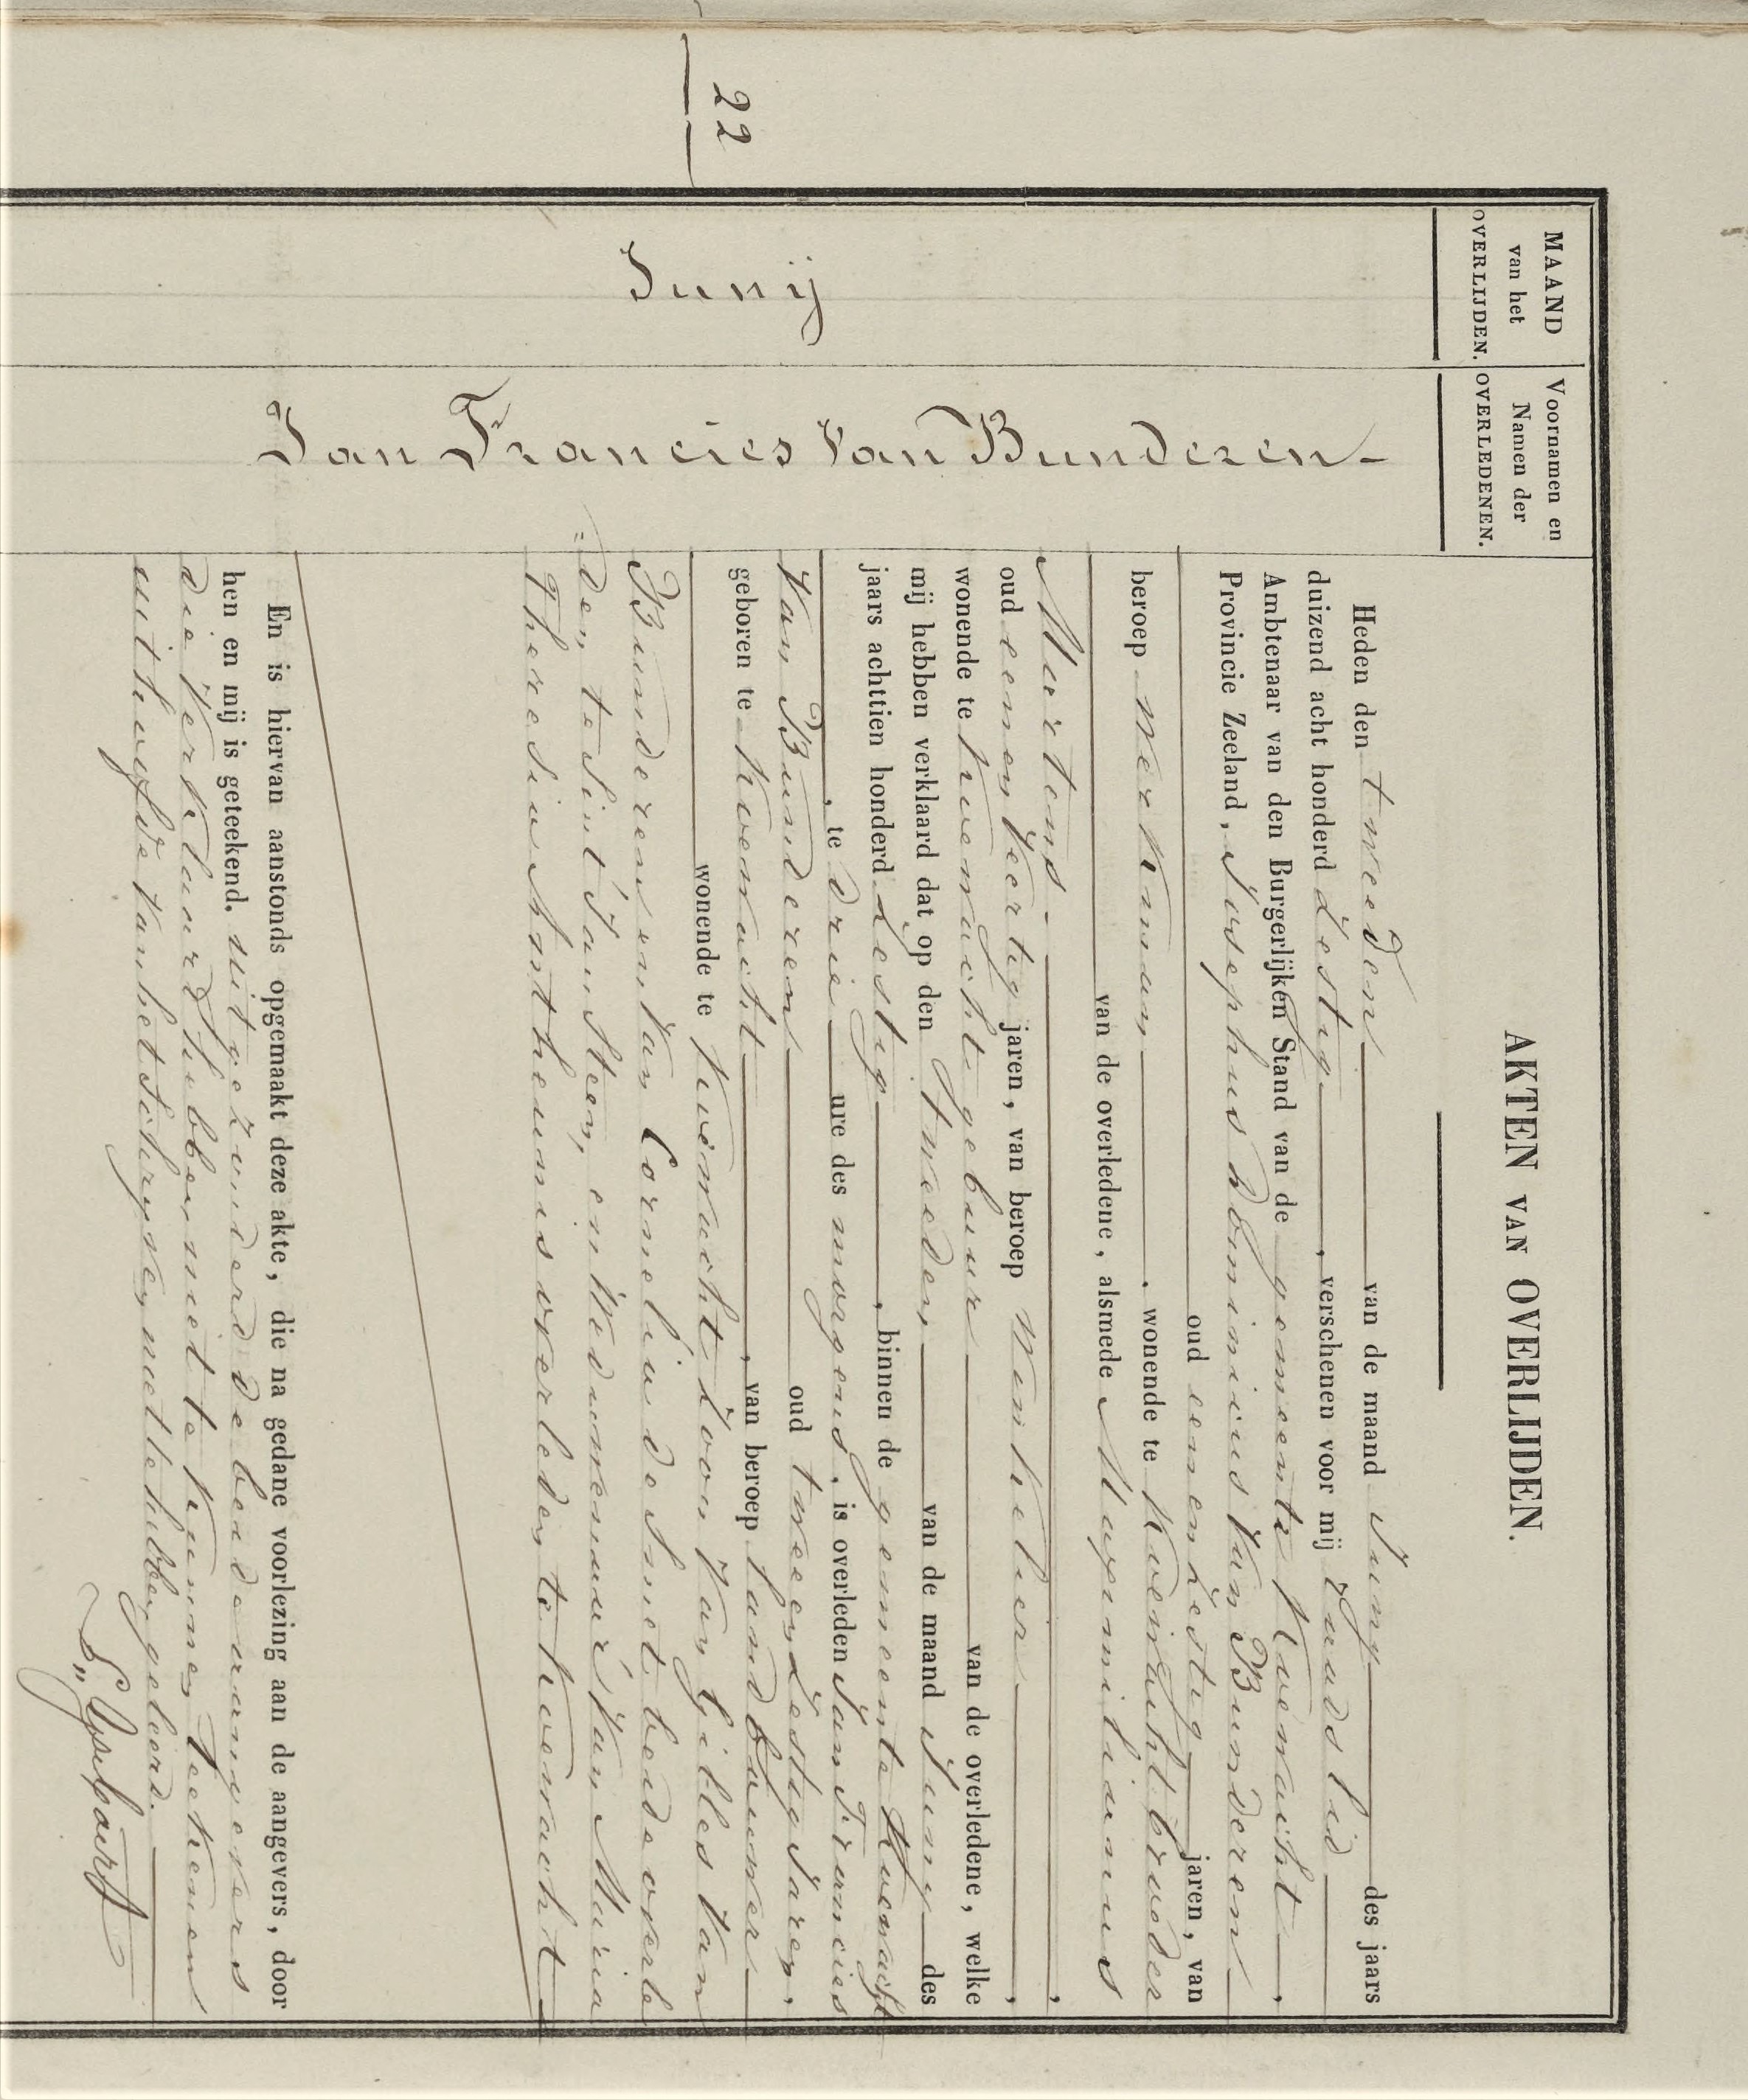 AKTEN VAN OVERLIJDEN.
MAAND
van het
OVERLIJDEN.
Voornamen en
Namen der
OVERLEDENEN.
22
Junij
Jan Francies Van Bunderen
Heden den tweeden van de maand Juny des jaars
duizend acht honderd zestig, verschenen voor mij raadslid
Ambtenaar van den Burgerlijken Stand van de gemeente Koewacht,
Provincie Zeeland, Josephus Dominicus Van Bunderen
oud eenenzestig jaren, van
beroep werkman, wonende te Koewacht broeder
van de overledene, alsmede Maximilianus
Mertens,
oud eenenveertig jaren, van beroep winkelier,
wonende te Koewacht gebuur van de overledene, welke
mij hebben verklaard dat op den tweeden van de maand Juny des
jaars achttien honderd zestig, binnen de gemeente Koewacht
, te drie ure des morgens, is overleden Jan Francies
Van Bunderen oud tweeenzestig Jaren,
geboren te Koewacht, van beroep landbouwer
wonende te Koewacht zoon van Gilles van
Bunderen en van Cornelia de Smet beide overle
den te Sint Jansteen, en weduwenaar van Maria
Theresia Antheunis overleden te Koewacht
En is hiervan aanstonds opgemaakt deze akte, die na gedane voorlezing aan de aangevers, door
hen en mij is geteekend. uitgezonderd de beide aangevers
die verklaard hebben niet te kunnen teekenen
uit hoofde van het schryven niet te hebben geleerd.